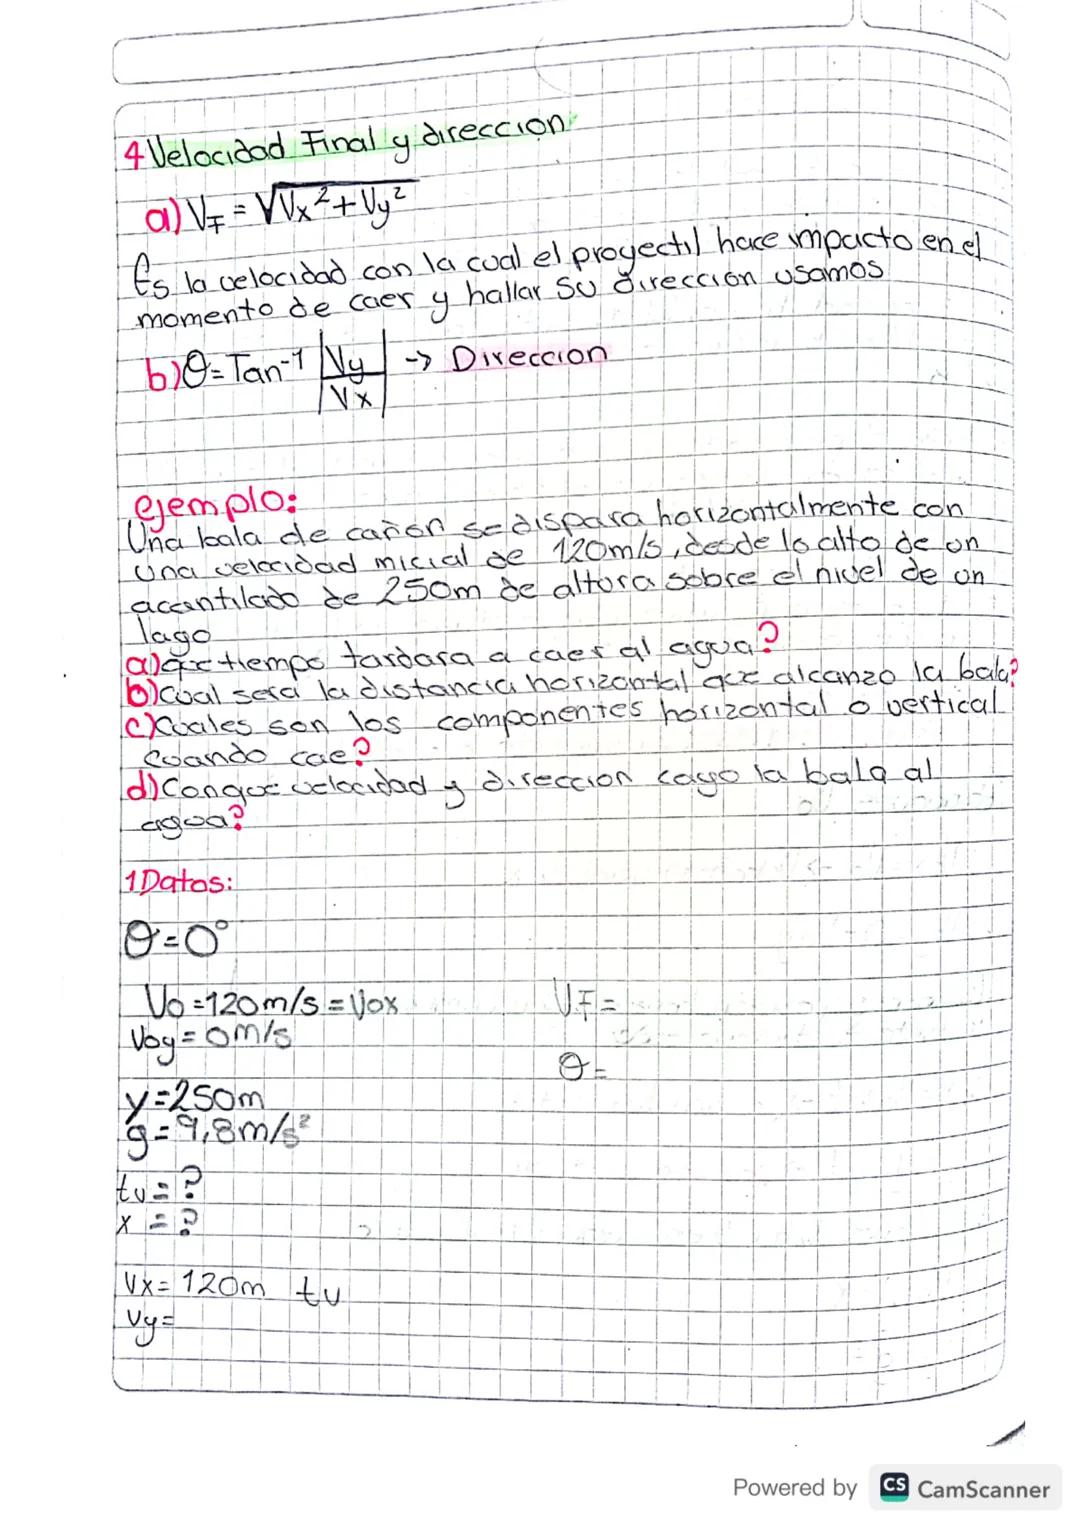 4 Velocidad Final y direccion
a) VF = √Vx² + Vy²
Es la velocidad con la cual el proyectil hace impacto en el
momento de caer y hallar su dirección usamos
b) θ = Tan⁻¹ |Vy/Vx| → Direccion
ejemplo:
Una bala de cañon se dispara horizontalmente con
una velocidad inicial de 120m/s, desde lo alto de un
acantilado de 250m de altura sobre el nivel de un
lago
a) que tiempo tardara a caer al agua?
b) cual sera la distancia horizontal que alcanzo la bala?
c) Cuales son los componentes horizontal o vertical
cuando cae?
d) Con que velocidad y direccion cayo la bala al
agua?
1 Datos:
θ = 0°
Vo = 120m/s = Vox
VF =
Voy = 0m/s
θ =
y = 250m
g = 9,8m/s²
tv = ?
x = ?
Vx = 120m tv
Vy =
Powered by CS CamScanner